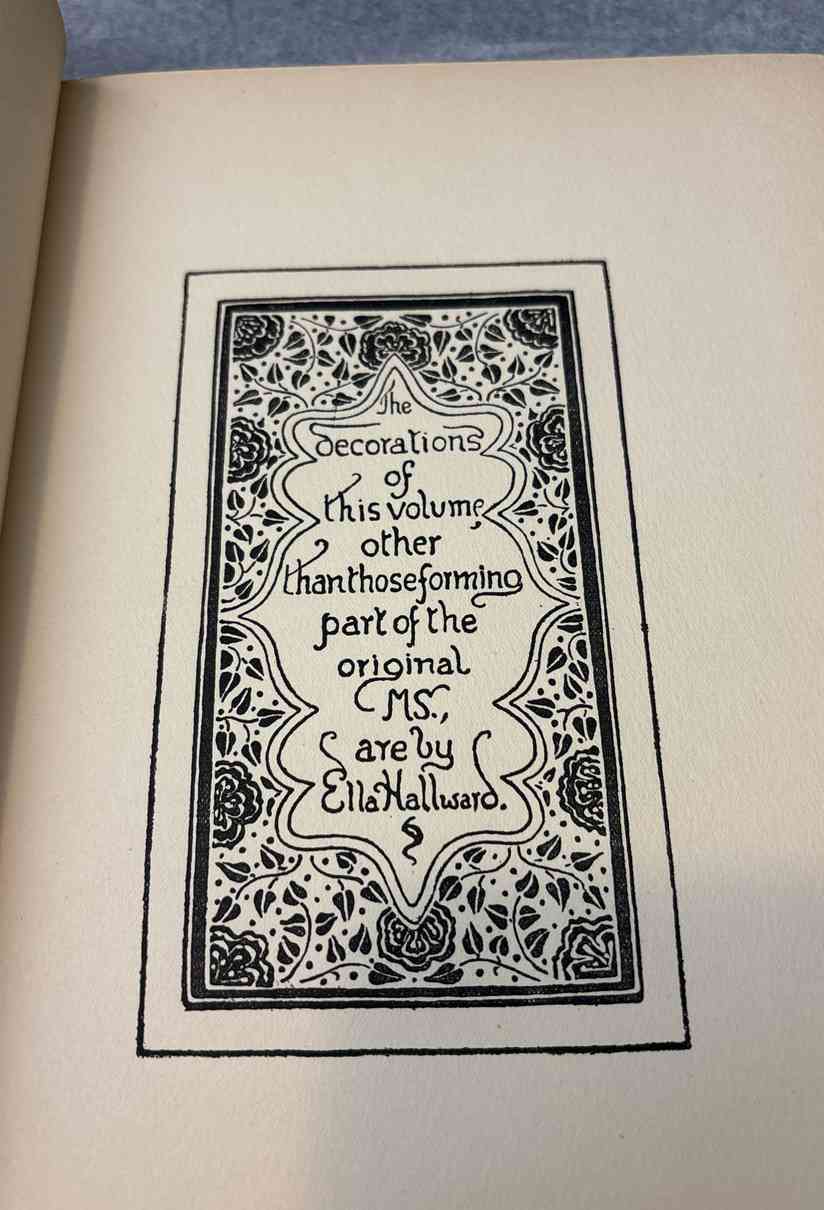 The
decorations
of
this volume
other
than those forming
part of the
original
MS.,
are by
Ella Hallward.